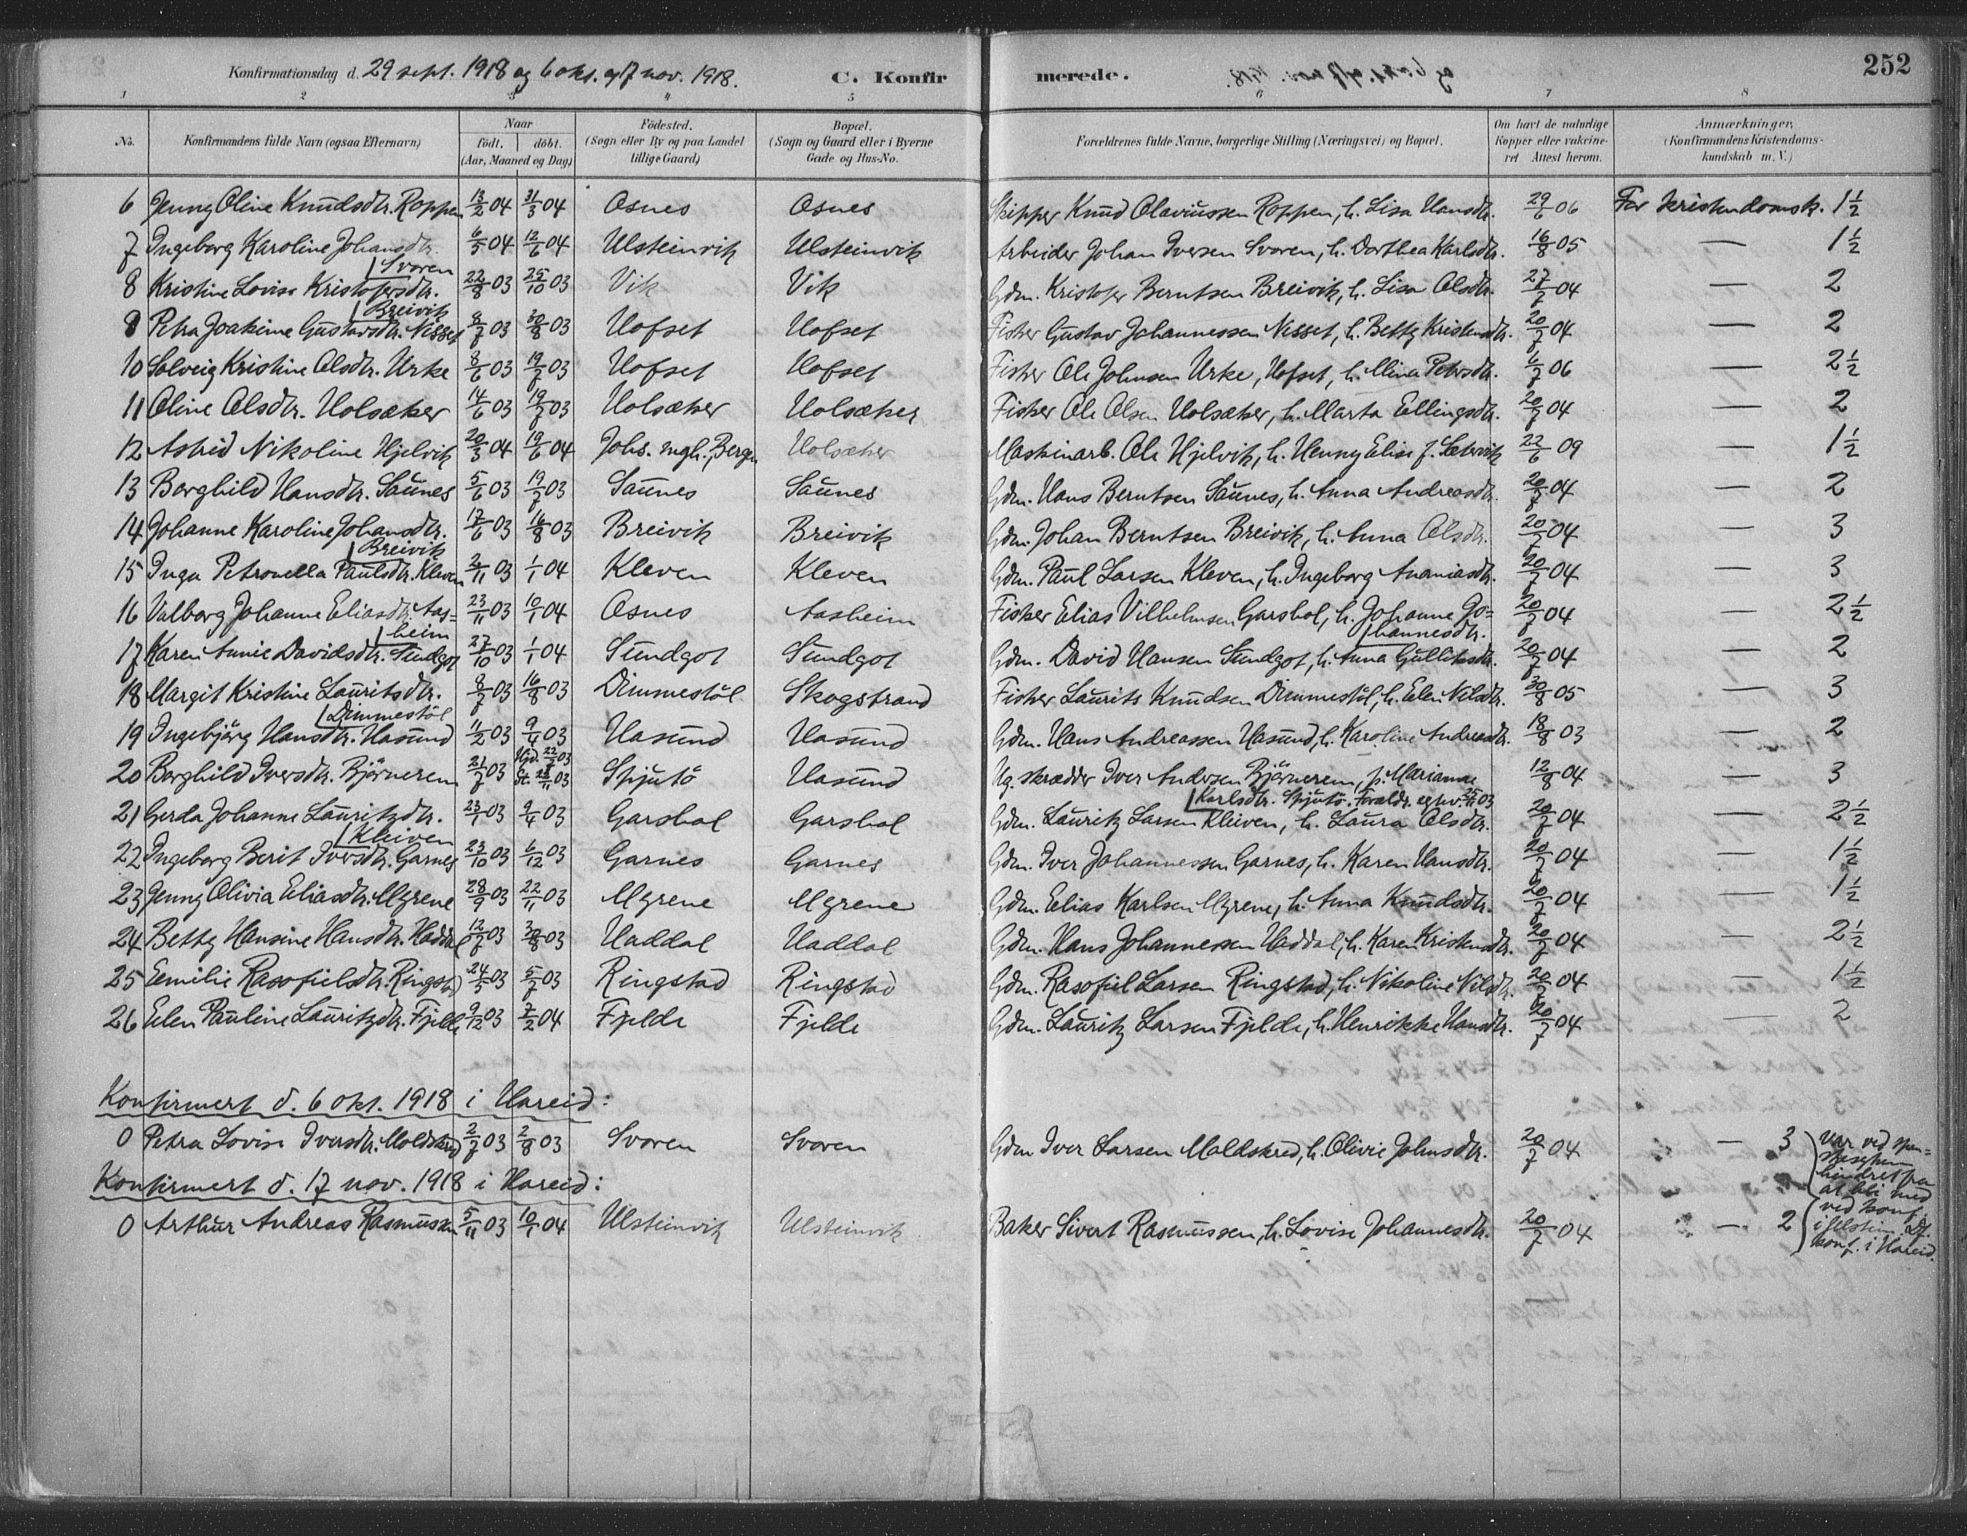 Konfirmationsdag d. 29 sept. 1918 og 6 okt. og 17 nov. 1918. C. Konfirmerede. 252
1 2 3 4 5 6 7 8
No. Konfirmandens fulde Navn (ogsaa Efternavn) Naar født, døbt. (Aar, Maaned og Dag) Fødested. (Sogn eller By og paa Landet tillige Gaard) Bopæl. (Sogn og Gaard eller i Byerne Gade og Hus-No. Forældrenes fulde Navne, borgerlige Stilling (Næringsvei) og Bopæl. Om havt de naturlige Kopper eller vakcineret Attest herom. Anmærkninger. (Konfirmandens Kristendomskundskab m. V.)
6 Jenny Oline Knudsdtr. Roppen 13/2 04 31/3 04 Osnes Osnes Skipper Knud Olaviussen Roppen, h. Lisa Hansdtr. 29/6 06 For kristendomsk. 1½
7 Ingeborg Karoline Johansdtr. Svoren 6/5 04 12/6 04 Ulsteinvik Ulsteinvik Arbeider Johan Iversen Svoren, h. Dorthea Karlsdtr. 16/8 05 — 1½
8 Kristine Lovise Kristofersdtr. Breivik 22/8 03 25/10 03 Vik Vik Gdm. Kristofer Berntsen Breivik, h. Lisa Olsdtr. 27/7 04 — 2
9 Petra Joakime Gustavsdtr. Nesset 8/7 03 30/8 03 Hofset Hofset Fisker Gustav Johannessen Nesset, h. Betty Kristensdtr. 20/7 04 — 2
10 Solveig Kristine Olsdtr. Urke 8/6 03 19/7 03 Hofset Hofset Fisker Ole Johnsen Urke, Hofset, h. Mina Petersdtr. 6/7 06 — 2½
11 Oline Olsdtr. Holsæker 14/6 03 19/7 03 Holsæker Holsæker Fisker Ole Olsen Holsæker, h. Marta Ellingsdtr. 20/7 04 — 2
12 Astrid Nikoline Hjelvik 20/3 04 19/6 04 Johs. mgh., Bergen Holsæker Maskinarb. Ole Hjelvik, h. Henny Elise f. Sætervik 22/6 09 — 1½
13 Borghild Hansdtr. Saunes 5/6 03 19/7 03 Saunes Saunes Gdm. Hans Berntsen Saunes, h. Anna Andreasdtr. 20/7 04 — 2
14 Johanne Karoline Johansdtr. Breivik 17/6 03 16/8 03 Breivik Breivik Gdm. Johan Berntsen Breivik, h. Anna Olsdtr. 20/7 04 — 3
15 Inga Petronella Paulsdtr. Kleven 2/11 03 1/1 04 Kleven Kleven Gdm. Paul Larsen Kleven, h. Ingeborg Ananiasdtr. 20/7 04 — 3
16 Valborg Johanne Eliasdtr. Aasheim 23/11 03 10/1 04 Osnes Aasheim Fisker Elias Vilhelmsen Garshol, h. Johanne Johannesdtr. 20/7 04 — 2½
17 Karen Annie Davidsdtr. Sundgot 27/10 03 1/1 04 Sundgot Sundgot Gdm. David Hansen Sundgot, h. Anna Gulliksdtr. 20/7 04 — 2
18 Margit Kristine Lauritsdtr. Dimmestøl 8/7 03 16/8 03 Dimmestøl Skogstrand Fisker Laurits Knudsen Dimmestøl, h. Elen Nilsdtr. 30/8 05 — 3
19 Ingebjørg Hansdtr. Hasund 11/2 03 9/4 03 Hasund Hasund Gdm. Hans Andreassen Hasund, h. Karoline Andreasdtr. 18/8 03 — 2
20 Borghild Iversdtr. Bjørnerem 21/7 03 Hjd. 22/7 03 St. 22/11 03 Spjutø Hasund Ug. skrædder Iver Andersen Bjørnerem, p. Marianne Karlsdtr. Spjutø. Forældr. egtev. 25/11 03 12/8 04 — 3
21 Gerda Johanne Lauritzdtr. Kleiven 23/1 03 9/4 03 Garshol Garshol Gdm. Lauritz Larsen Kleiven, h. Laura Olsdtr. 20/7 04 — 2½
22 Ingeborg Berit Iversdtr. Garnes 23/10 03 6/12 03 Garnes Garnes Gdm. Iver Johannessen Garnes, h. Karen Hansdtr. 20/7 04 — 1½
23 Jenny Olivia Eliasdtr. Myrene 28/9 03 22/11 03 Myrene Myrene Gdm. Elias Karlsen Myrene, h. Anna Knudsdtr. 20/7 04 — 1½
24 Betty Hansine Hansdtr. Haddal 12/7 03 30/8 03 Haddal Haddal Gdm. Hans Johannessen Haddal, h. Karen Kristensdtr. 20/7 04 — 2½
25 Emilie Rasofielsdtr. Ringstad 24/5 03 5/7 03 Ringstad Ringstad Gdm. Rasofiel Larsen Ringstad, h. Nikoline Nilsdtr. 20/7 04 — 1½
26 Elen Pauline Lauritzdtr. Fjelde 9/12 03 7/2 04 Fjelde Fjelde Gdm. Lauritz Larsen Fjelde, h. Henrikke Hansdtr. 20/7 04 — 2
Konfirmert d. 6 okt. 1918 i Hareid:
0 Petra Lovise Iversdtr. Moldskred 2/7 03 2/8 03 Svoren Svoren Gdm Iver Larsen Moldskred, h. Olivie Johnsdtr. 20/7 04 — 3
Konfirmert d. 17 nov. 1918 i Hareid:
0 Arthur Andreas Rasmussen 5/11 03 10/1 04 Ulsteinvik Ulsteinvik Baker Sivert Rasmussen, h. Lovise Johannesdtr. 20/7 04 — 2
var ved spanskesyken hindret fra at bli med ved konf. i Ulstein. Df. konf. i Hareid.